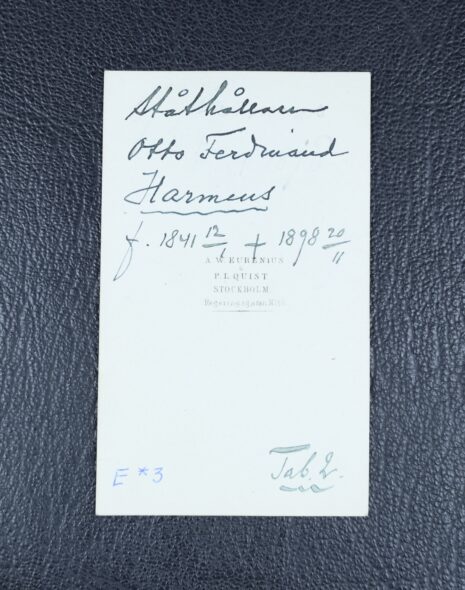 Ståthållaren
Otto Ferdinand
Harmens
f. 1841 12/1 † 1898 20/11
A. W. EURENIUS
&
P. L. QUIST
STOCKHOLM
Regeringsgatan
Tab. 2.
E *3